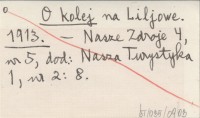 O kolej na Liljowe.
1913. — Nasze Zdroje 4,
nr 5, dod: Nasza Turystyka
1, nr 2: 8.